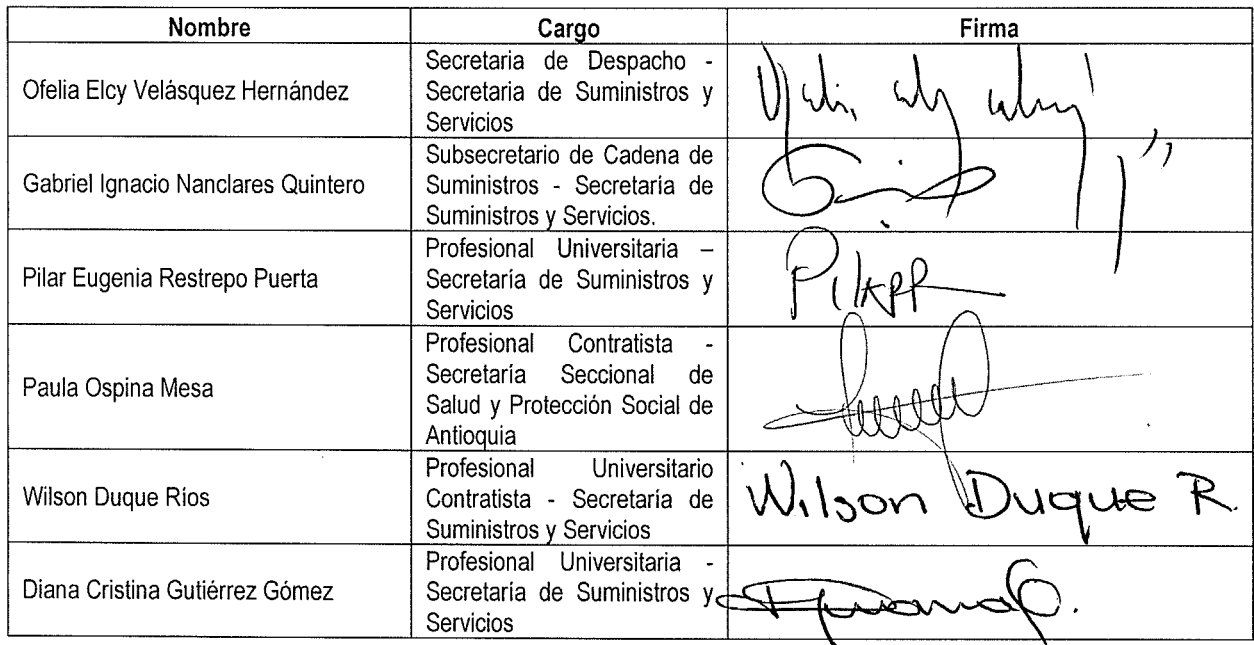 Nombre Cargo Firma
Ofelia Elcy Velásquez Hernández
Secretaria de Despacho -
Secretaria de Suministros y
Servicios
Gabriel Ignacio Nanclares Quintero
Subsecretario de Cadena de
Suministros - Secretaría de
Suministros y Servicios.
Pilar Eugenia Restrepo Puerta
Profesional Universitaria –
Secretaría de Suministros y
Servicios
Paula Ospina Mesa
Profesional Contratista -
Secretaría Seccional de
Salud y Protección Social de
Antioquia
Wilson Duque Ríos
Profesional Universitario
Contratista - Secretaría de
Suministros y Servicios
Wilson Duque R.
Diana Cristina Gutiérrez Gómez
Profesional Universitaria -
Secretaría de Suministros y
Servicios